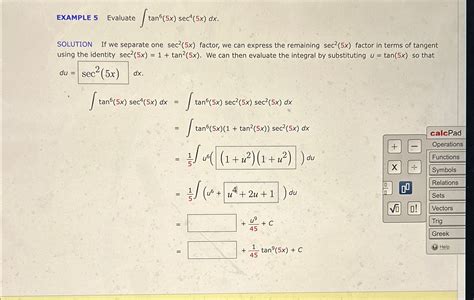 EXAMPLE 5 Evaluate ∫ tan⁶(5x) sec⁴(5x) dx.
SOLUTION If we separate one sec²(5x) factor, we can express the remaining sec²(5x) factor in terms of tangent
using the identity sec²(5x) = 1 + tan²(5x). We can then evaluate the integral by substituting u = tan(5x) so that
du = sec²(5x) dx.
∫ tan⁶(5x) sec⁴(5x) dx = ∫ tan⁶(5x) sec²(5x) sec²(5x) dx
= ∫ tan⁶(5x)(1 + tan²(5x)) sec²(5x) dx
= 1/5 ∫ u⁶( (1 + u²)(1 + u²) ) du
= 1/5 ∫ (u⁶ + u⁴ + 2u + 1 ) du
= + u⁹/45 + C
= + 1/45 tan⁹(5x) + C
calcPad
Operations
+ −
Functions
x ÷
Symbols
Relations
Sets
√0 0!
Vectors
Trig
Greek
Help